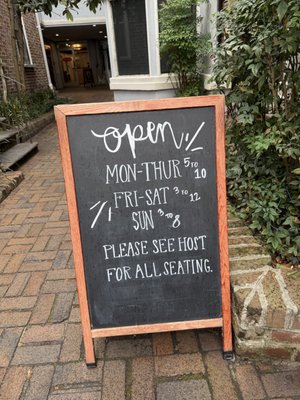 open
MON-THUR 5 TO 10
FRI-SAT 3 TO 12
SUN 3 TO 8
PLEASE SEE HOST
FOR ALL SEATING.